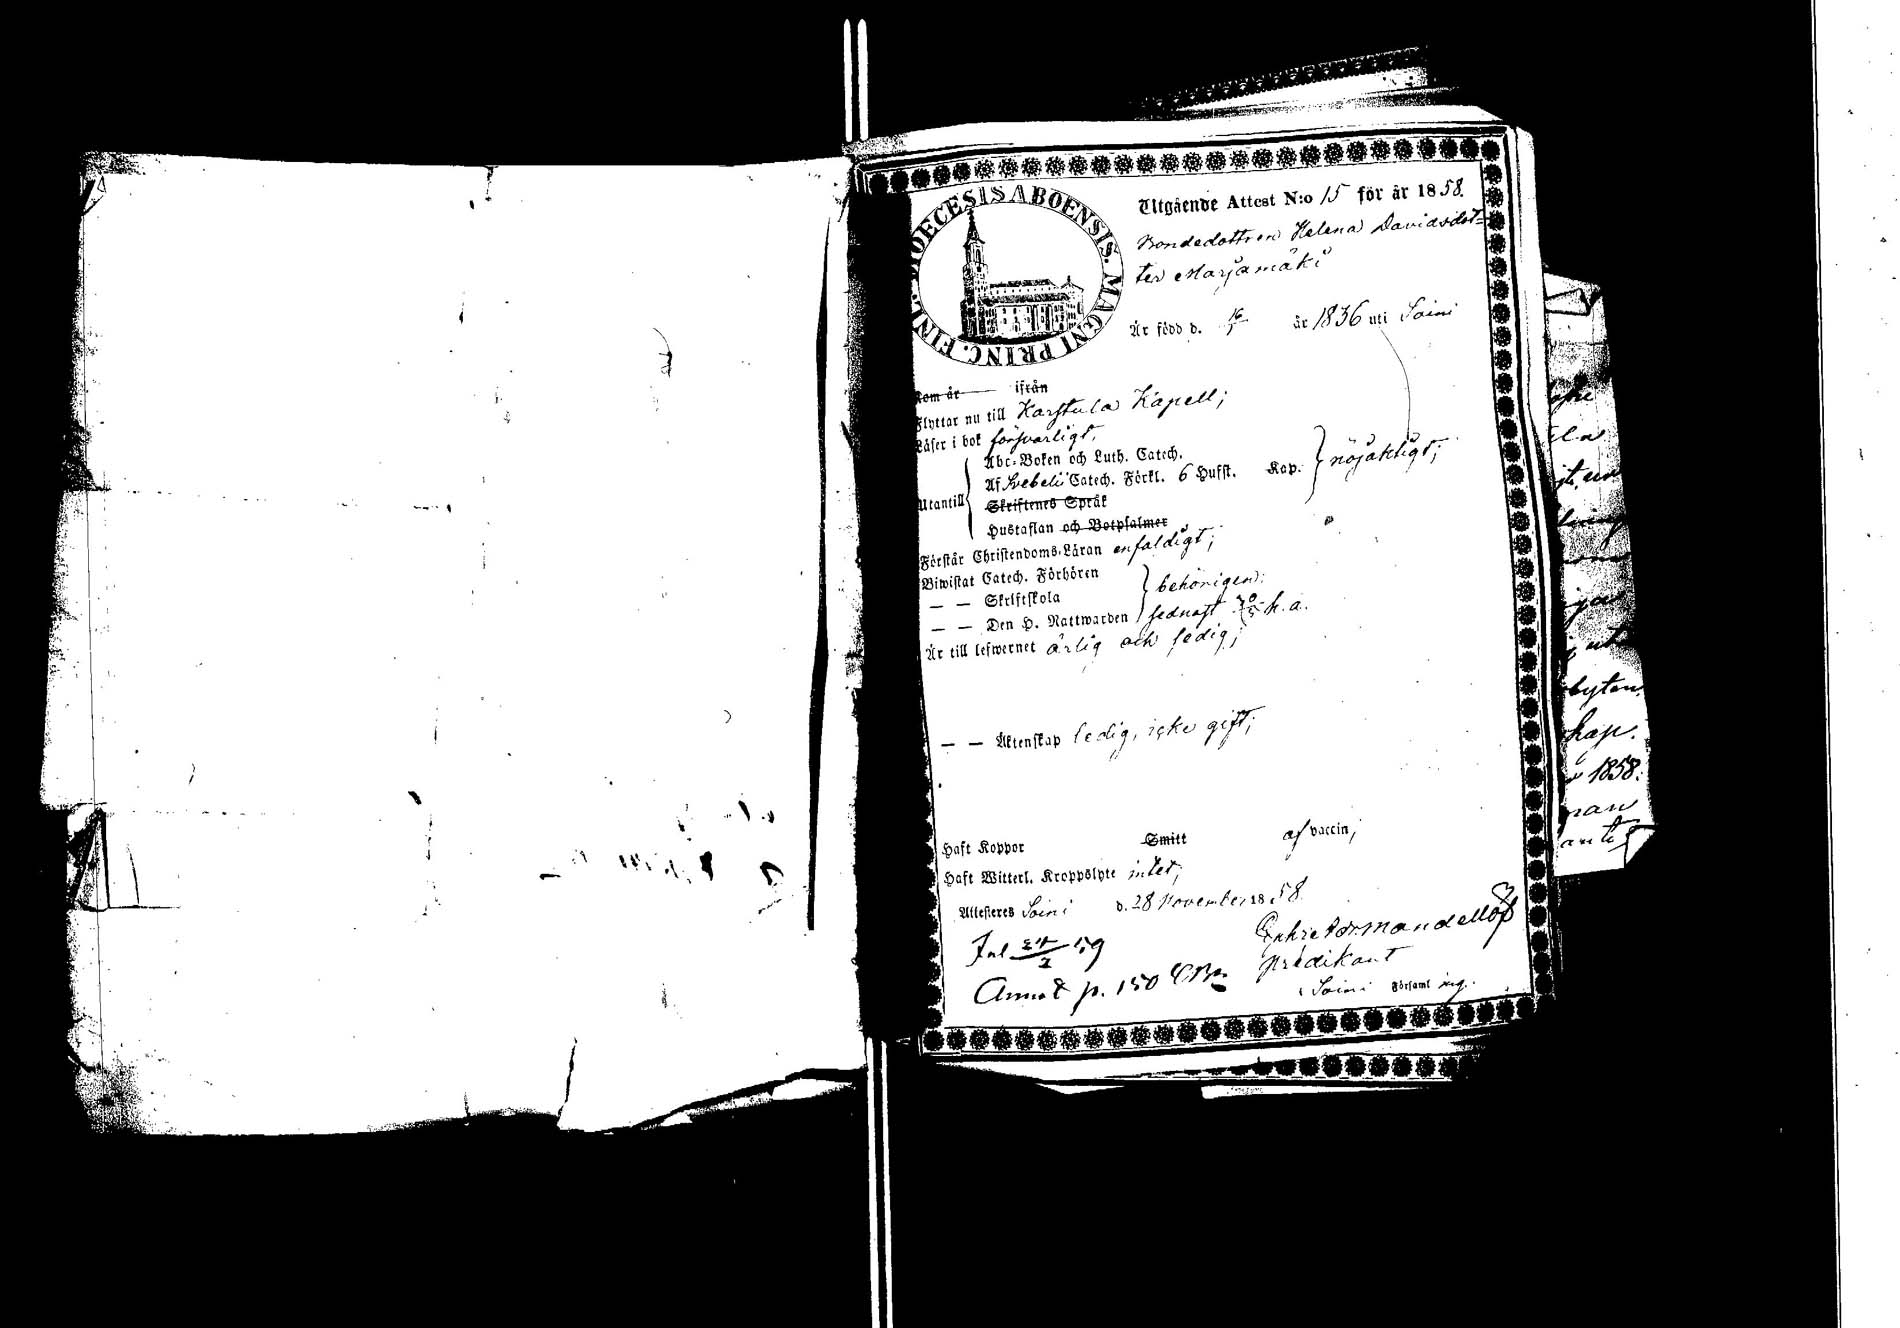 DIOECESIS ABOENSIS. MAGNI PRINC. FINL.
Utgående Attest N:o 15 för år 1858.
Bondedottren Helena Davidsdot=
ter Marjamäki
Är född d. 16/1 år 1836 uti Soini
Kom år ifrån
Flyttar nu till Karstula Kapell;
Läser i bok försvarligt.
Abc-Boken och Luth. Catech.
Af Svebelii Catech. Förkl. 6 Hufst. Kap. nöjaktligt;
Utantill
Skriftenes Språk
Hustaflan och Botpsalmer
Förstår Christendoms-Läran enfaldigt;
Biwistat Catech. Förhören
— — Skriftskola behörigen:
— — Den H. Nattwarden sednast h. a.
Är till lefwernet ärlig och ledig;
— — Äktenskap ledig, icke gift;
Haft Koppor Smitt af vaccin;
Haft Witterl. Kroppslyte intet;
Attesteras Soini d. 28 November 1858.
Annot p. 150
predikant
i Soini Församl ing.
byten
1858.